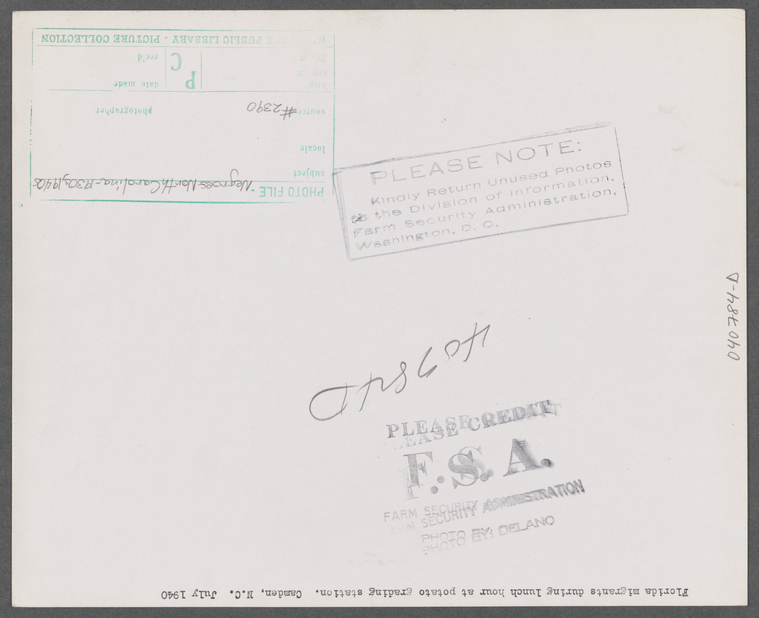 NEW YORK PUBLIC LIBRARY - PICTURE COLLECTION
P C
rec'd
date made
source #2390
photographer
locale
subject
PHOTO FILE - Negroes-North Carolina-1930s, 1940s
PLEASE NOTE:
Kindly Return Unused Photos
to the Division of Information,
Farm Security Administration,
Washington, D. C.
040784-D
40784D
PLEASE CREDIT
F.S.A.
FARM SECURITY ADMINISTRATION
PHOTO BY: DELANO
Florida migrants during lunch hour at potato grading station. Camden, N.C. July 1940